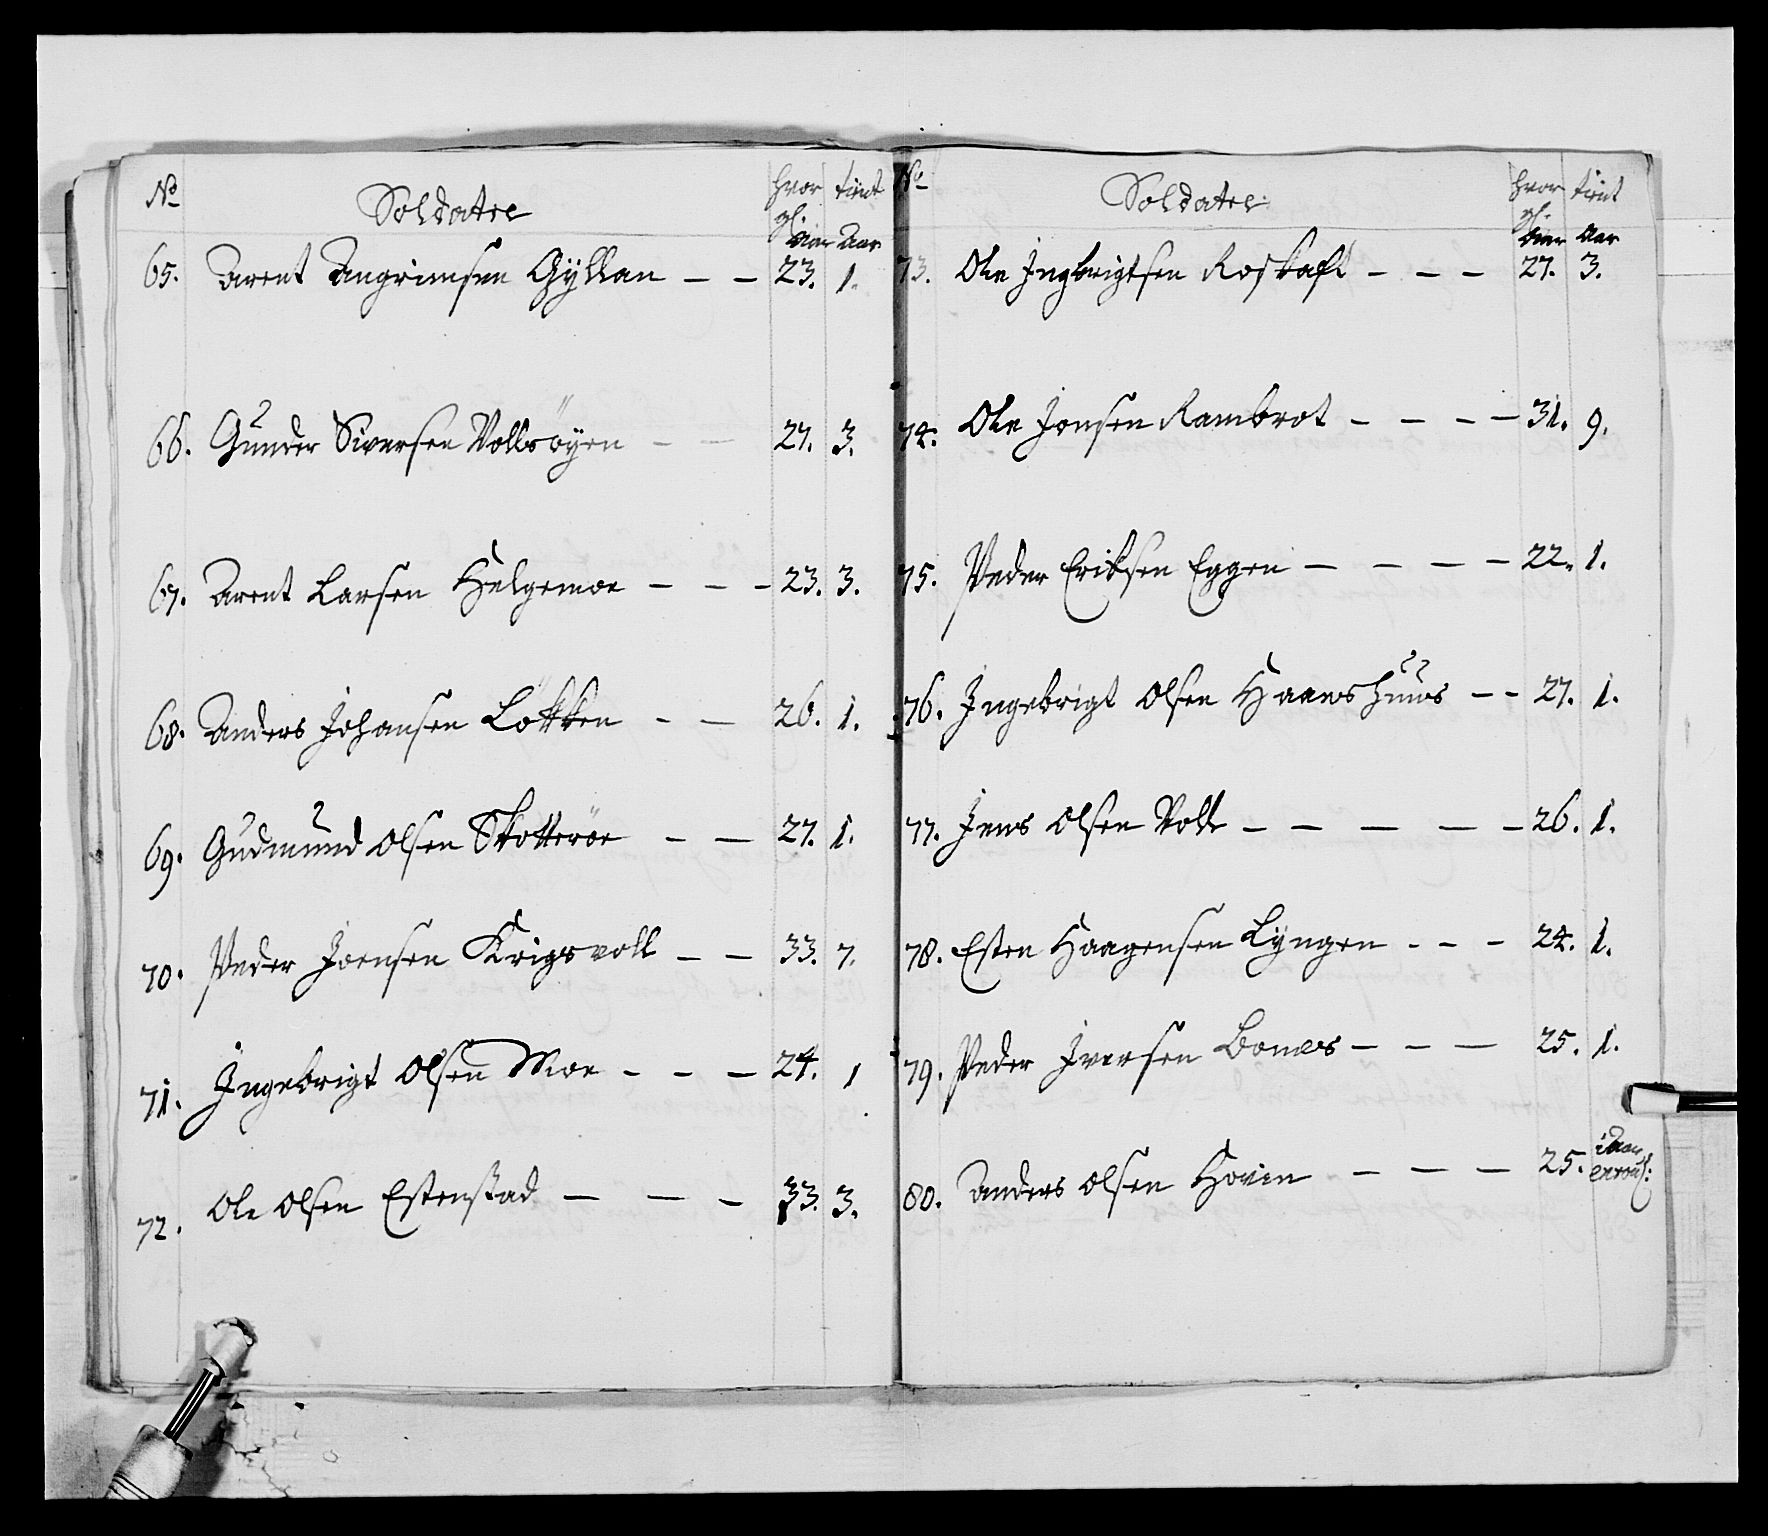 No
Soldater
hvor
gl.
Aar
tient
Aar
65. Arent Angrimsen Gyllan - - 23. 1.
66. Gunder Siversen Vollsöyen - - 27. 3.
67. Arent Larsen Helgemoe - - - 23. 3.
68. Anders Johansen Løkken - - 26. 1.
69. Gudmund Olsen Skotteröe - - 27. 1.
70. Peder Joensen Krigsvoll - - 33. 7.
71. Ingebrigt Olsen Moe - - - 24. 1
72. Ole Olsen Estenstad - - - 33. 3.
No
Soldater
hvor
gl.
Aar
tient
Aar
73. Ole Ingbrigtsen Roskaft - - - 27. 3.
74. Ole Jonsen Rambrot - - - - 31. 9.
75. Peder Eriksen Eggen - - - - 22. 1.
76. Ingebrigt Olsen Haaershuus - - 27. 1.
77. Jens Olsen Voll - - - - - 26. 1.
78. Esten Haagensen Lyngen - - - 24. 1.
79. Peder Iversen Bones - - - 25. 1.
80. Anders Olsen Hovin - - - 25. i Aar
enroul: